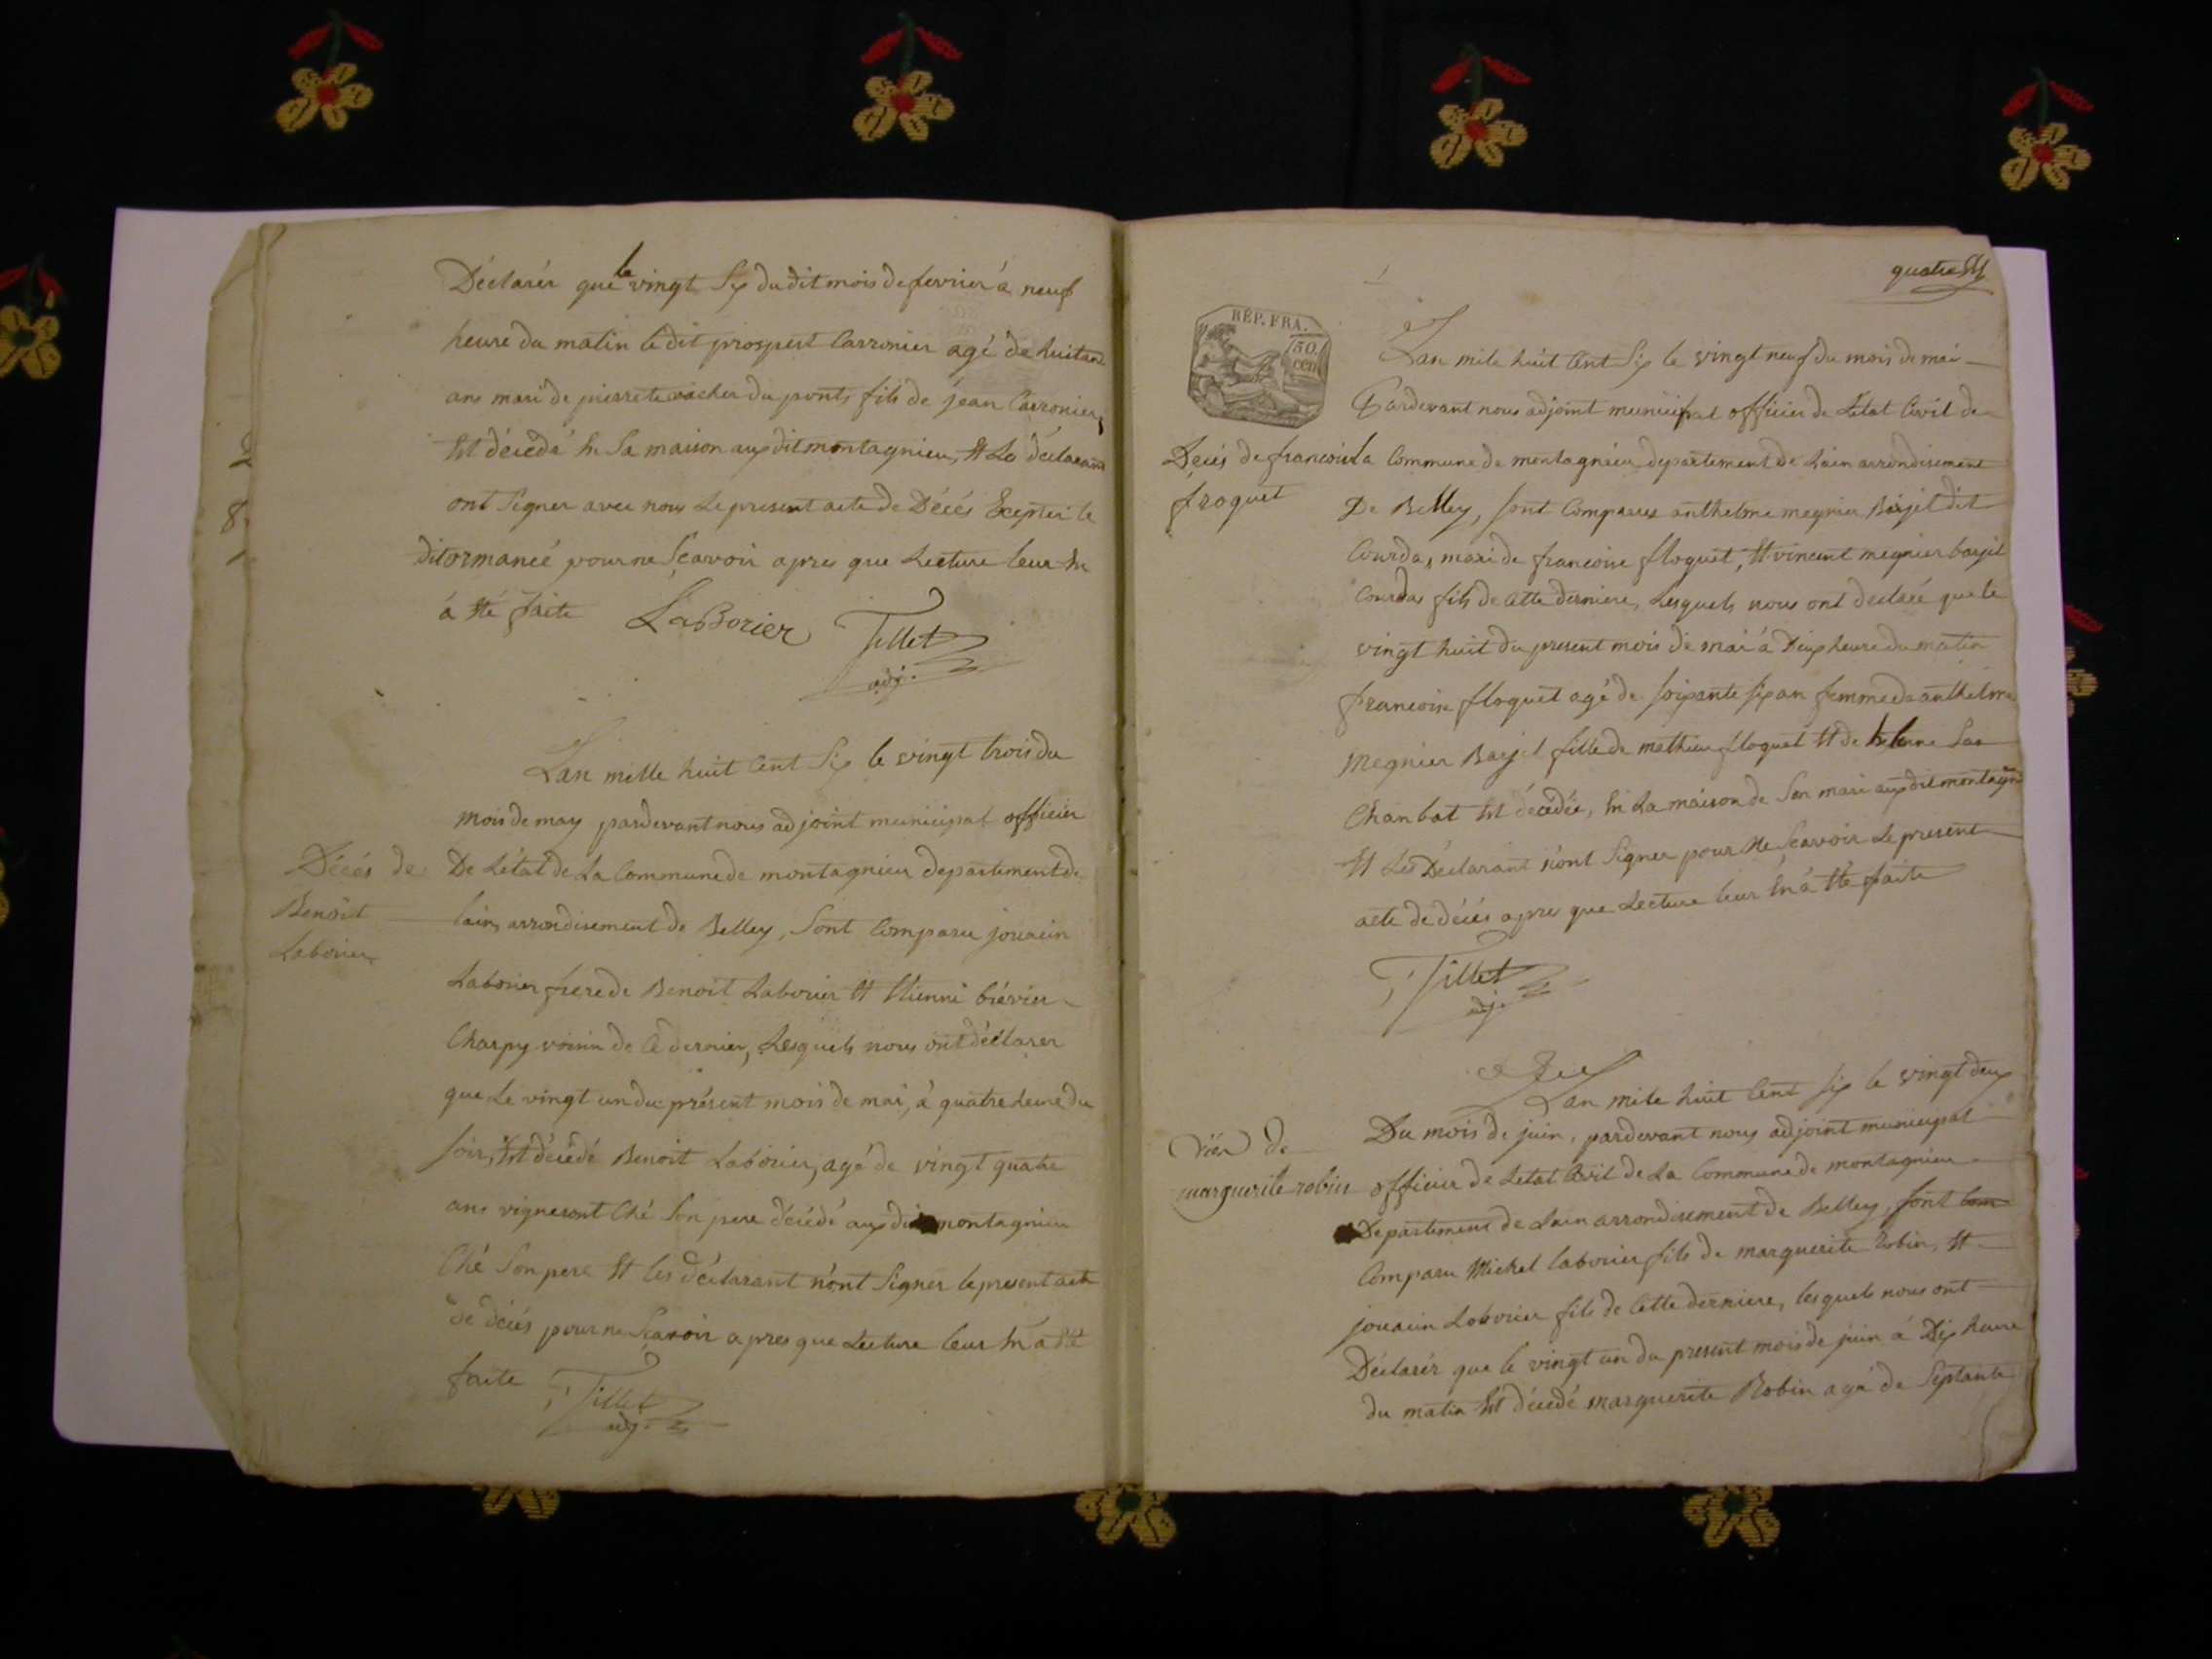 Déclarér que le vingt Six du dit mois de fevrier á neuf
heure du matin le dit prospert Carronier agé de huitante
ans mari de pierrete vacher du ponts fils de jean Carronier,
Est décedé En Sa maison aux dit montagnieu, Et Les déclarant
ont Signer avec nous Le present acte de Décés Excepter le
dit ormancé pour ne Sçavoir apres que Lecture leur En
á Eté faite LaBorier Tillet
adj.
Lan mille huit Cent Six le vingt trois du
mois de may pardevant nous adjoint municipal officier
Décés de
Benoit
Laborier
De Létat de La Commune de montagnieu departement de
lain, arrondisement de Belley, Sont Comparu jouacin
Laborier frere de Benoit Laborier Et Etienne biévier
Charpy voisin de Ce dernier, Lesquels nous ont déclarer
que Le vingt un du présent mois de mai, á quatre heure du
soir, Est décédé Benoit Laborier, agé de vingt quatre
ans vigneront Ché Son pere décédé aux dit montagnieu
Ché Son pere Et les déclarant n'ont Signer le present acte
de décés pour ne Sçavoir apres que Lecture leur En a Eté
faite Tillet
adj.
quatre
RÉP. FRA.
50.
cen
Lan mile huit Cent Six le vingt neuf du mois de mai
Pardevant nous adjoint municipal officier de Létat Civil de
Décés de francoise
froquet
la Commune de montagnieu departement de Lain arrondisement
De Belley, Sont Comparus anthelme megnier Barjel dit
Courda, mari de francoise floquet, Et vincent megnier barjel
Courdas fils de Cette derniere, Lesquels nous ont declaré que le
vingt huit du present mois de mai á Deux heure du matin
francoise floquet agé de soixante six an femme de anthelme
Megnier Barjel fille de mathieu floquet Et de helenne Sar
Chanbat Est décedée, En La maison de Son mari aux dit montagn
Et Les Déclarant n'ont Signer pour Ne Scavoir Le present
acte de décés apres que Lecture leur En á Eté faite
Tillet
adj.
Lan mile huit Cent Six le vingt deux
Du mois de juin, pardevant nous adjoint municipal
de
marguerite robin
officier de Letat Civil de La Commune de montagnieu
Departement de Lain arrondisement de Belley, sont com
Comparu Michel laborier fils de marguerite Robin, Et
jouacin Laborier fils de Cette derniere, lesquels nous ont
Déclarér que le vingt un du present mois de juin á Dix heure
du matin Est décedé marguerite Robin agé de Septante